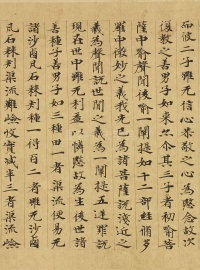 而彼二子雖无信心恭敬之心為愍念故次
復教之善男子如來亦尒其三子者初喻菩
薩中喻聲聞後喻一闡提如十二部經脩多
羅中微妙之義我先已為諸菩薩說淺近之
義為聲聞說世間之義為一闡提五逆罪說
現在世中雖无利益以憐愍故為生後世諸
善種子善男子如三種田一者渠流便易无
諸沙鹵瓦石棘刺種一得百二者雖无沙鹵
瓦石棘刺渠流難嶮收實減半三者渠流嶮